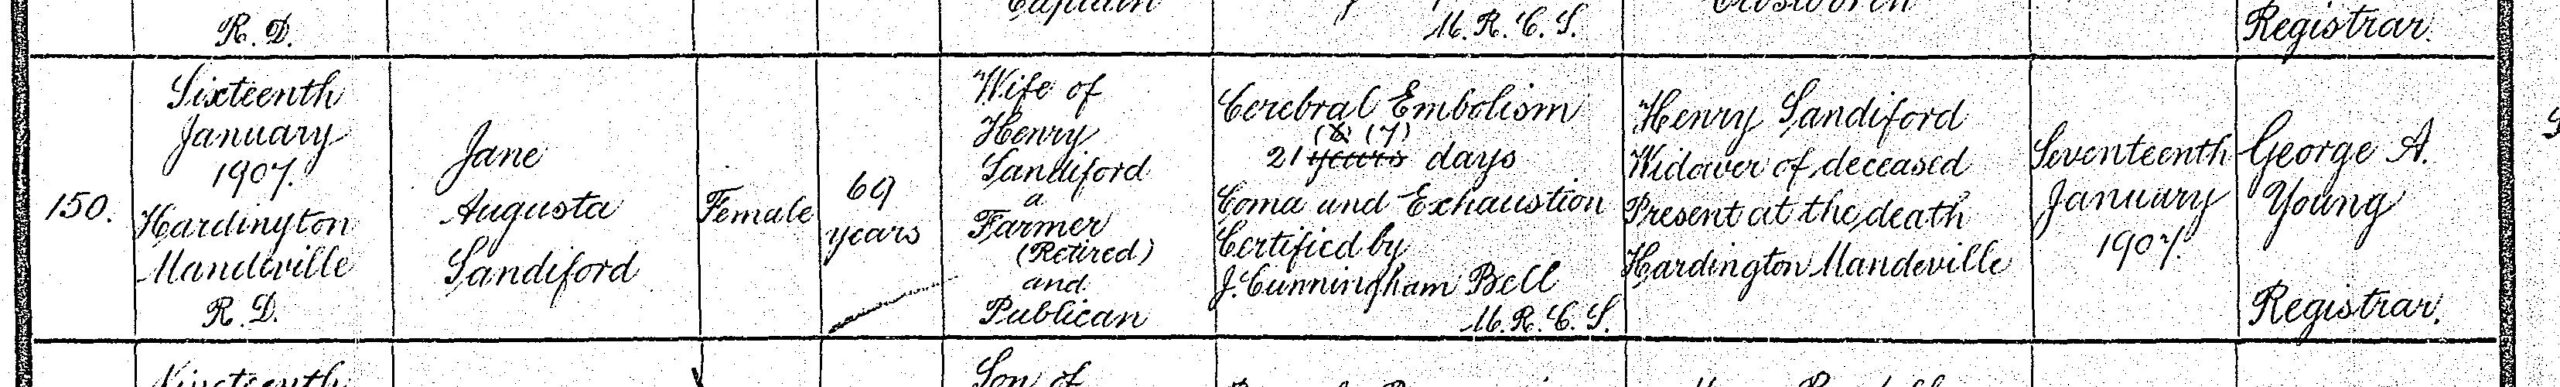 R. D.
M. R. C. S.
Registrar.
150.
Sixteenth
January
1907.
Hardington
Mandeville
R. D.
Jane
Augusta
Sandiford
Female
69
years
Wife of
Henry
Sandiford
a
Farmer
(Retired)
and
Publican
Cerebral Embolism
21 years days
Coma and Exhaustion
Certified by
J. Cunningham Bell
M. R. C. S.
Henry Sandiford
Widower of deceased
Present at the death
Hardington Mandeville
Seventeenth
January
1907.
George A.
Young
Registrar.
Nineteenth
Son of